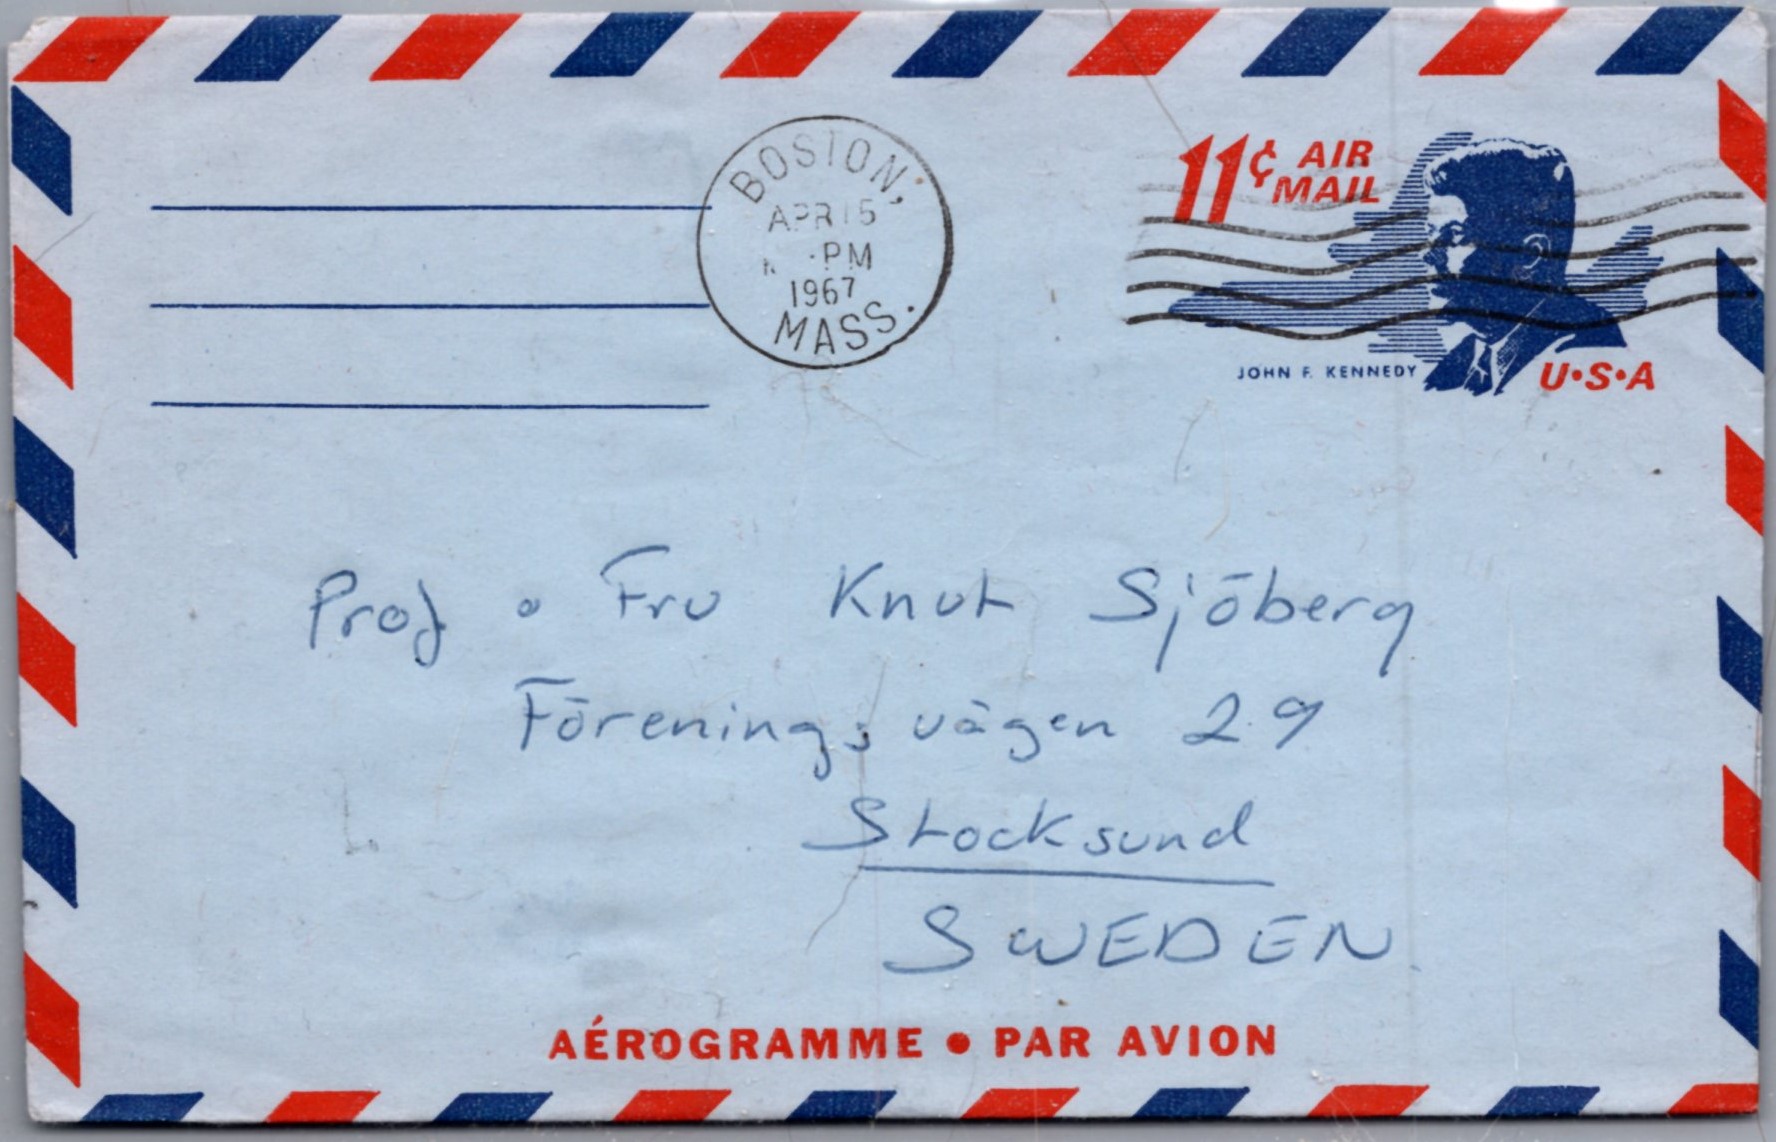 BOSTON,
APR 15
PM
1967
MASS.
11¢ AIR
MAIL
JOHN F. KENNEDY
U•S•A
Prof o Fru Knut Sjöberg
Föreningsvägen 29
Stocksund
SWEDEN
AÉROGRAMME • PAR AVION